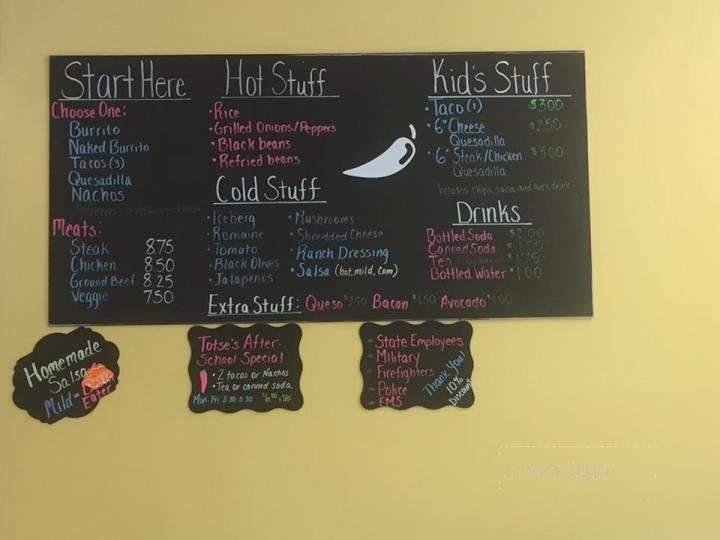 Start Here
Choose One:
Burrito
Naked Burrito
Tacos (3)
Quesadilla
Nachos
Meats:
Steak 8.75
Chicken 8.50
Ground Beef 8.25
Veggie 7.50
Hot Stuff
• Rice
• Grilled Onions/Peppers
• Black beans
• Refried beans
Cold Stuff
• Iceberg
• Romaine
• Tomato
• Black Olives
• Jalapenos
• Mushrooms
• Shredded Cheese
• Ranch Dressing
• Salsa (hot, mild, corn)
Extra Stuff: Queso Bacon $1.50 Avocado $1.00
Kid's Stuff
• Taco (1) $3.00
• 6" Cheese $2.50
Quesadilla
• 6" Steak/Chicken $3.00
Quesadilla
Includes chips, salsa, and kid's drink
Drinks
Bottled Soda $2.00
Canned Soda
Tea 1.75
Bottled Water $1.00
Homemade
Salsa
Mild =
Eater
Totse's After-
School Special
• 2 tacos or Nachos
• Tea or canned soda
Mon-Fri 3:30-5:30
State Employees
Military
Firefighters
Police
EMS
Thank You!
10%
Discount